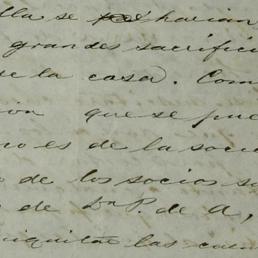 lla se harian
grandes sacrifici
se la casa. Com
ion que se pue
no es de la socie
o de los socios so
o de Dn P. de A,
iquitar las cuen